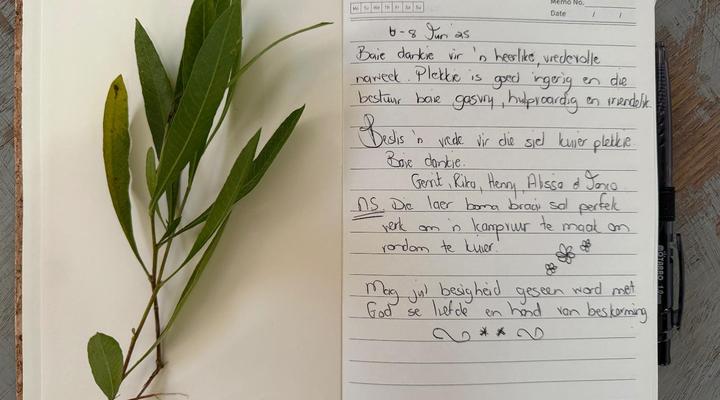 Mo Tu We Th Fr Sa Su
Memo No.
Date / /
6-8 Jun '25
Baie dankie vir 'n heerlike, vredevolle
naweek. Plekkie is goed ingerig en die
bestuur baie gasvry, hulpvaardig en vriendelik.
Beslis 'n vrede vir die siel kuier plekkie.
Baie dankie.
Gerrit, Rika, Henry, Alissa &
NS. Die laer boma braai sal perfek
werk om 'n kampvuur te maak om
rondom te kuier.
Mag jul besigheid geseen word met
God se liefde en hand van beskerming